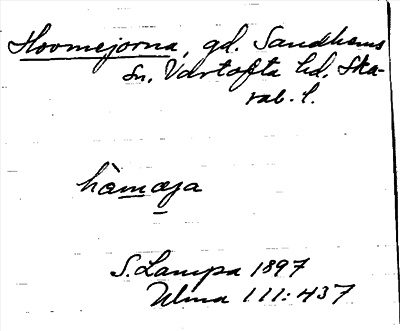 Hovmejorna, gd. Sandhems
sn, Vartofta hd, Ska-
rab. l.
hàmæja
S. Lampa 1897
Ulma 111:437